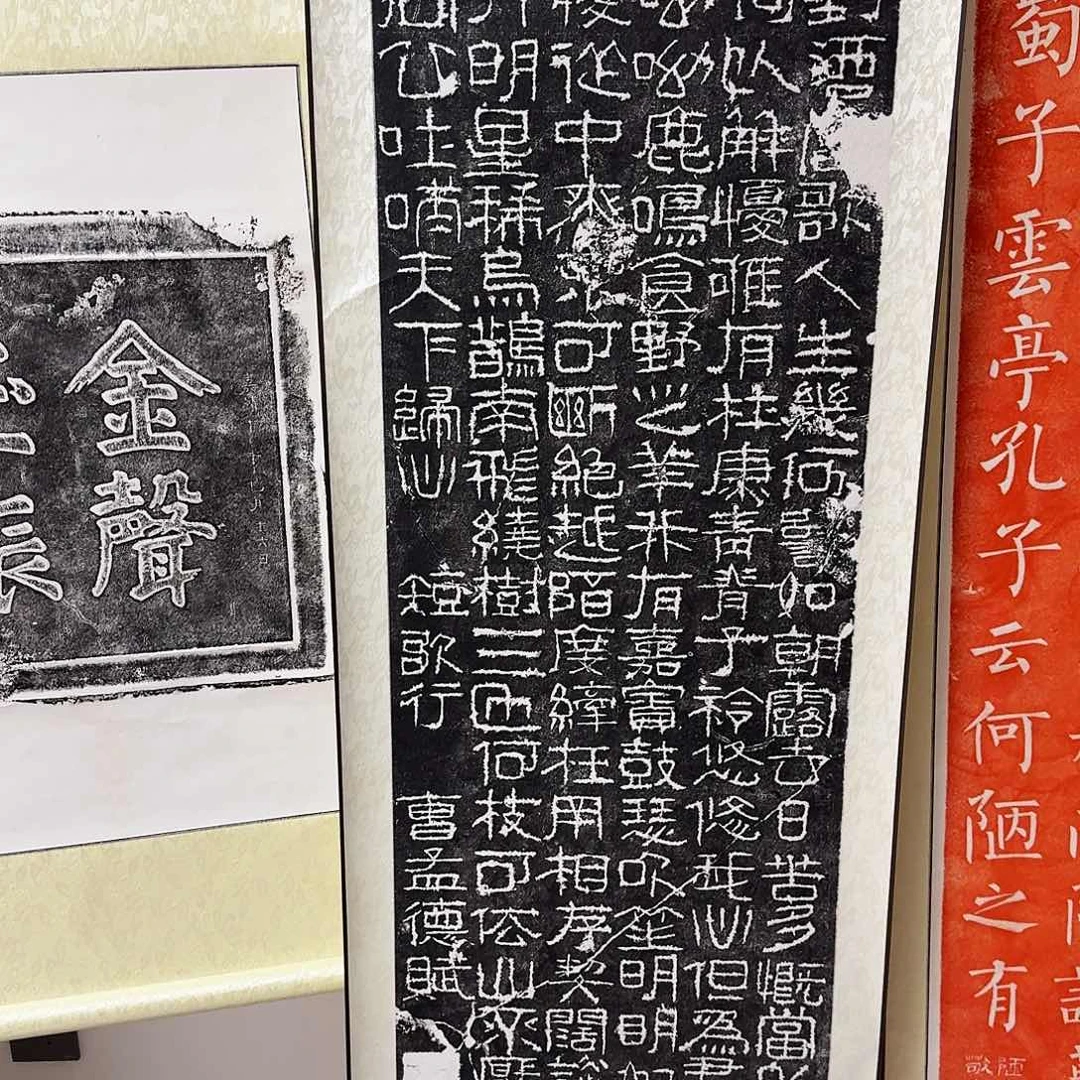 蜀子雲亭孔子云何陋之有
對酒當歌人生幾何譬如朝露去日苦多慨當
何以解憂唯有杜康青青子衿悠悠我心但為君
呦呦鹿鳴食野之苹我有嘉賓鼓瑟吹笙明明如
憂從中來不可斷絕越陌度阡枉用相存契闊談
月明星稀烏鵲南飛繞樹三匝何枝可依山不厭
周公吐哺天下歸心 短歌行 曹孟德賦
金聲